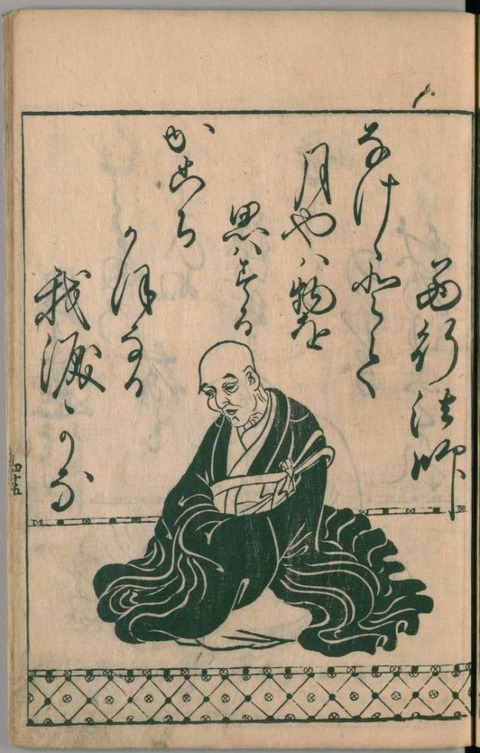 西行法師
なけゝとて
月やハ物を
思ハする
かこち
かほなる
我涙かな
四十五